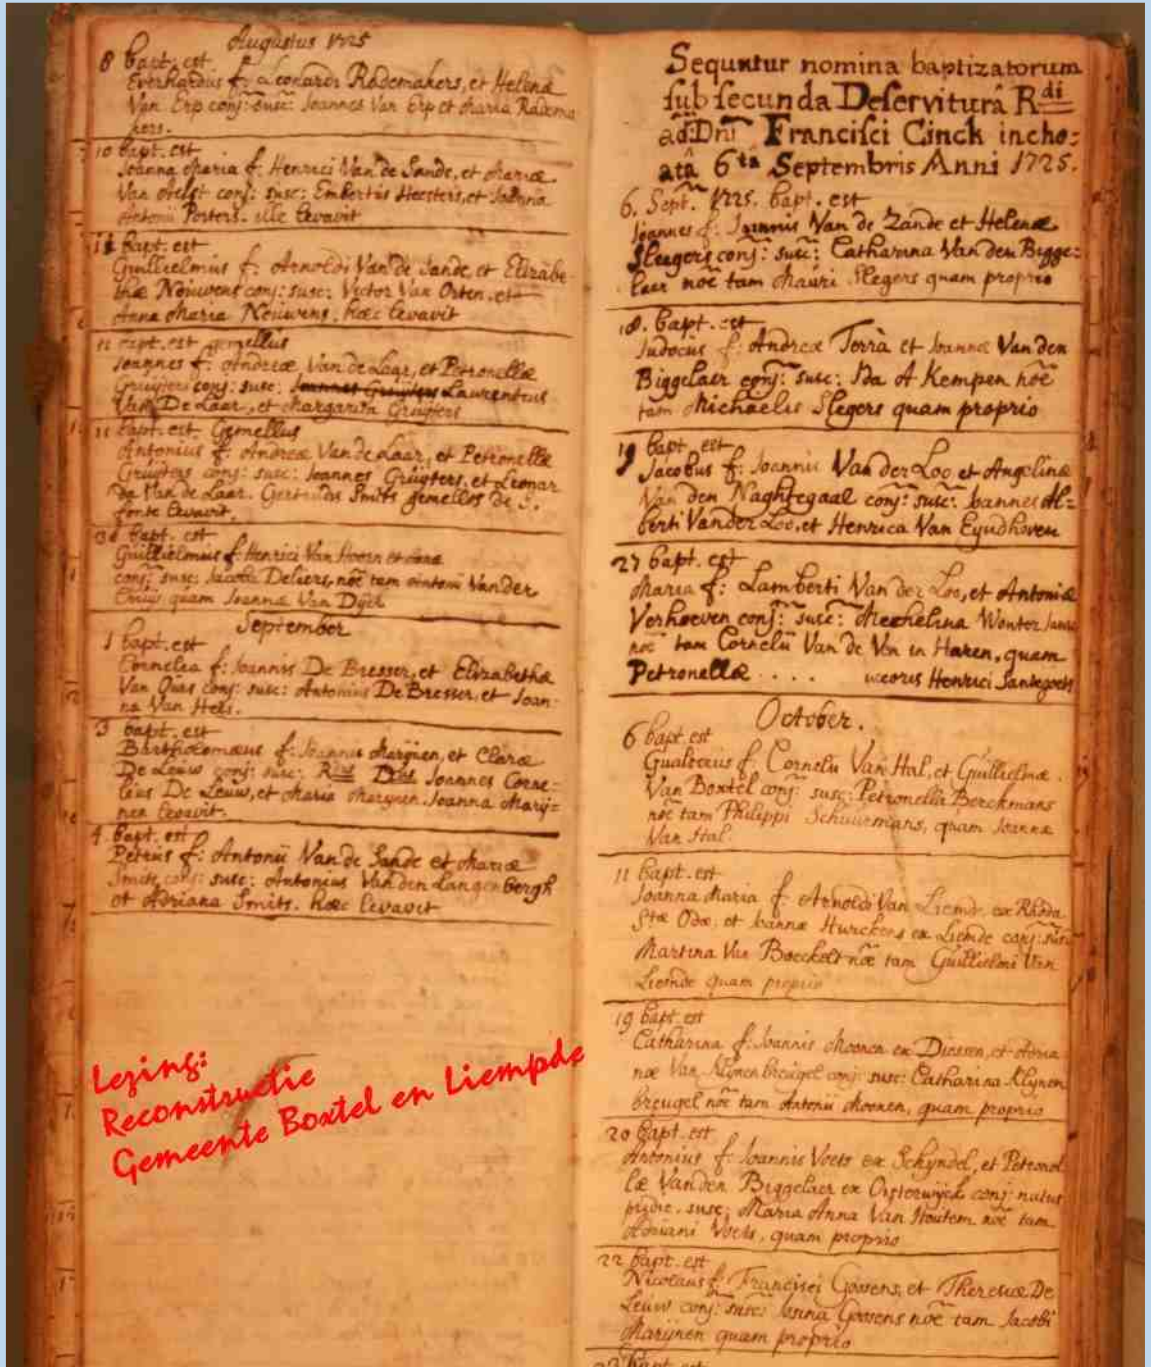 Augustus 1725
8 bapt. est
Everhardus f: Leonardi Rademakers, et Helenæ
Van Erp conj: susc: Joannes Van Erp et Maria Radema
kers.
10 bapt. est
Joanna Maria f: Henrici Van de Sande, et Mariæ
Van conj: susc: Embertus Heesters, et Joanna
Antonii Porters. ille levavit
11 bapt. est
Guillielmus f: Arnoldi Van de Sande et Elizabe-
thæ Nouwens conj: susc: Victor Van Orten, et
Anna Maria Nouwens. hæc levavit
11 bapt. est gemellus
Joannes f: Andreæ Van de Laar, et Petronellæ
Gruijters conj: susc: Joannes Gruijters Laurentius
Van De Laar, et Margarita Gruijters
11 bapt. est. Gemellus
Antonius f: Andreæ Van de Laar, et Petronellæ
Gruijters conj: susc: Joannes Gruijters, et Leonar
da Van de Laar. Gertrudis Smits gemellos de S.
fonte levavit.
bapt. est
Guillielmus f: Henrici Van Hoorn et
conj: susc: Jacoba Deliers, nõe tam Antonii Vander
quam Joannæ Van Dijck
September
1 bapt. est
Cornelia f: Joannis De Bresser, et Elizabethæ
Van Ours conj: susc: Antonius De Bresser, et Joan-
na Van Hels.
3 bapt. est
Bartholomæus f: Joannis Marijnen, et Claræ
De Leuw conj: susc: Rdus Dnus Joannes Corne-
lius De Leuw, et Maria Marijnen. Joanna Marij=
nen levavit.
4. bapt. est
Petrus f: Antonii Van de Sande et Mariæ
Smits conj: susc: Antonius Van den Langenbergh
et Adriana Smits. hæc levavit
Sequntur nomina baptizatorum
sub secunda Deserviturâ Rdi
ad: Dni Francisci Cinck incho=
atâ 6ta Septembris Anni 1725.
6. Sept. 1725. bapt. est
Joannes f: Joannis Van de Zande et Helenæ
Sleegers conj: susc: Catharina Van den Bigge=
laer nõe tam Mauri Slegers quam proprio
18. bapt. est
Judocus f: Andreæ Torrà et Joannæ Van den
Biggelaer conj: susc: Ida A Kempen nõe
tam Michaelis Slegers quam proprio
19 bapt. est
Jacobus f: Joannis Van der Loo et Angelinæ
Van den Naghtegaal conj: susc: Joannes Al=
berti Vander Loo, et Henrica Van Eyndhoven
27 bapt. est
Maria f: Lamberti Van der Loo, et Antoniæ
Verhoeven conj: susc: Mechelina Wouter
nõe tam Cornelii Van de Ven in Haren, quam
Petronellæ . . . . uxoris Henrici Santegoets
October.
6 bapt. est
Gualterus f: Cornelii Van Hal, et Guillielmæ
Van Boxtel conj: susc: Petronella Berckmans
nõe tam Philippi Schuurmans, quam Joannæ
Van Hal.
11 bapt. est
Joanna Maria f: Arnoldi Van Liemde ex Rhoda
Stæ Odæ, et Joannæ Hurckens ex Liemde conj: susc:
Martina Van Boeckelt nõe tam Guillielmi Van
Liemde quam proprio
19 bapt. est
Catharina f: Joannis Moonen ex Diessen, et Adria
næ Van Klijnenbreugel conj: susc: Catharina Klijnen
breugel nõe tam Antonii Moonen, quam proprio
20 bapt. est
Antonius f: Joannis Voets ex Schyndel, et Petronel
læ Vanden Biggelaer ex Oisterwijck conj: natus
pridie. susc: Maria Anna Van Houtem nõe tam
Adriani Voets, quam proprio
22 bapt. est
Nicolaus f: Francisci Goosens, et Theresiæ De
Leuw conj: susc: Josina Goosens nõe tam Jacobi
Marijnen quam proprio
23 bapt. est
Lezing:
Reconstructie
Gemeente Boxtel en Liempde